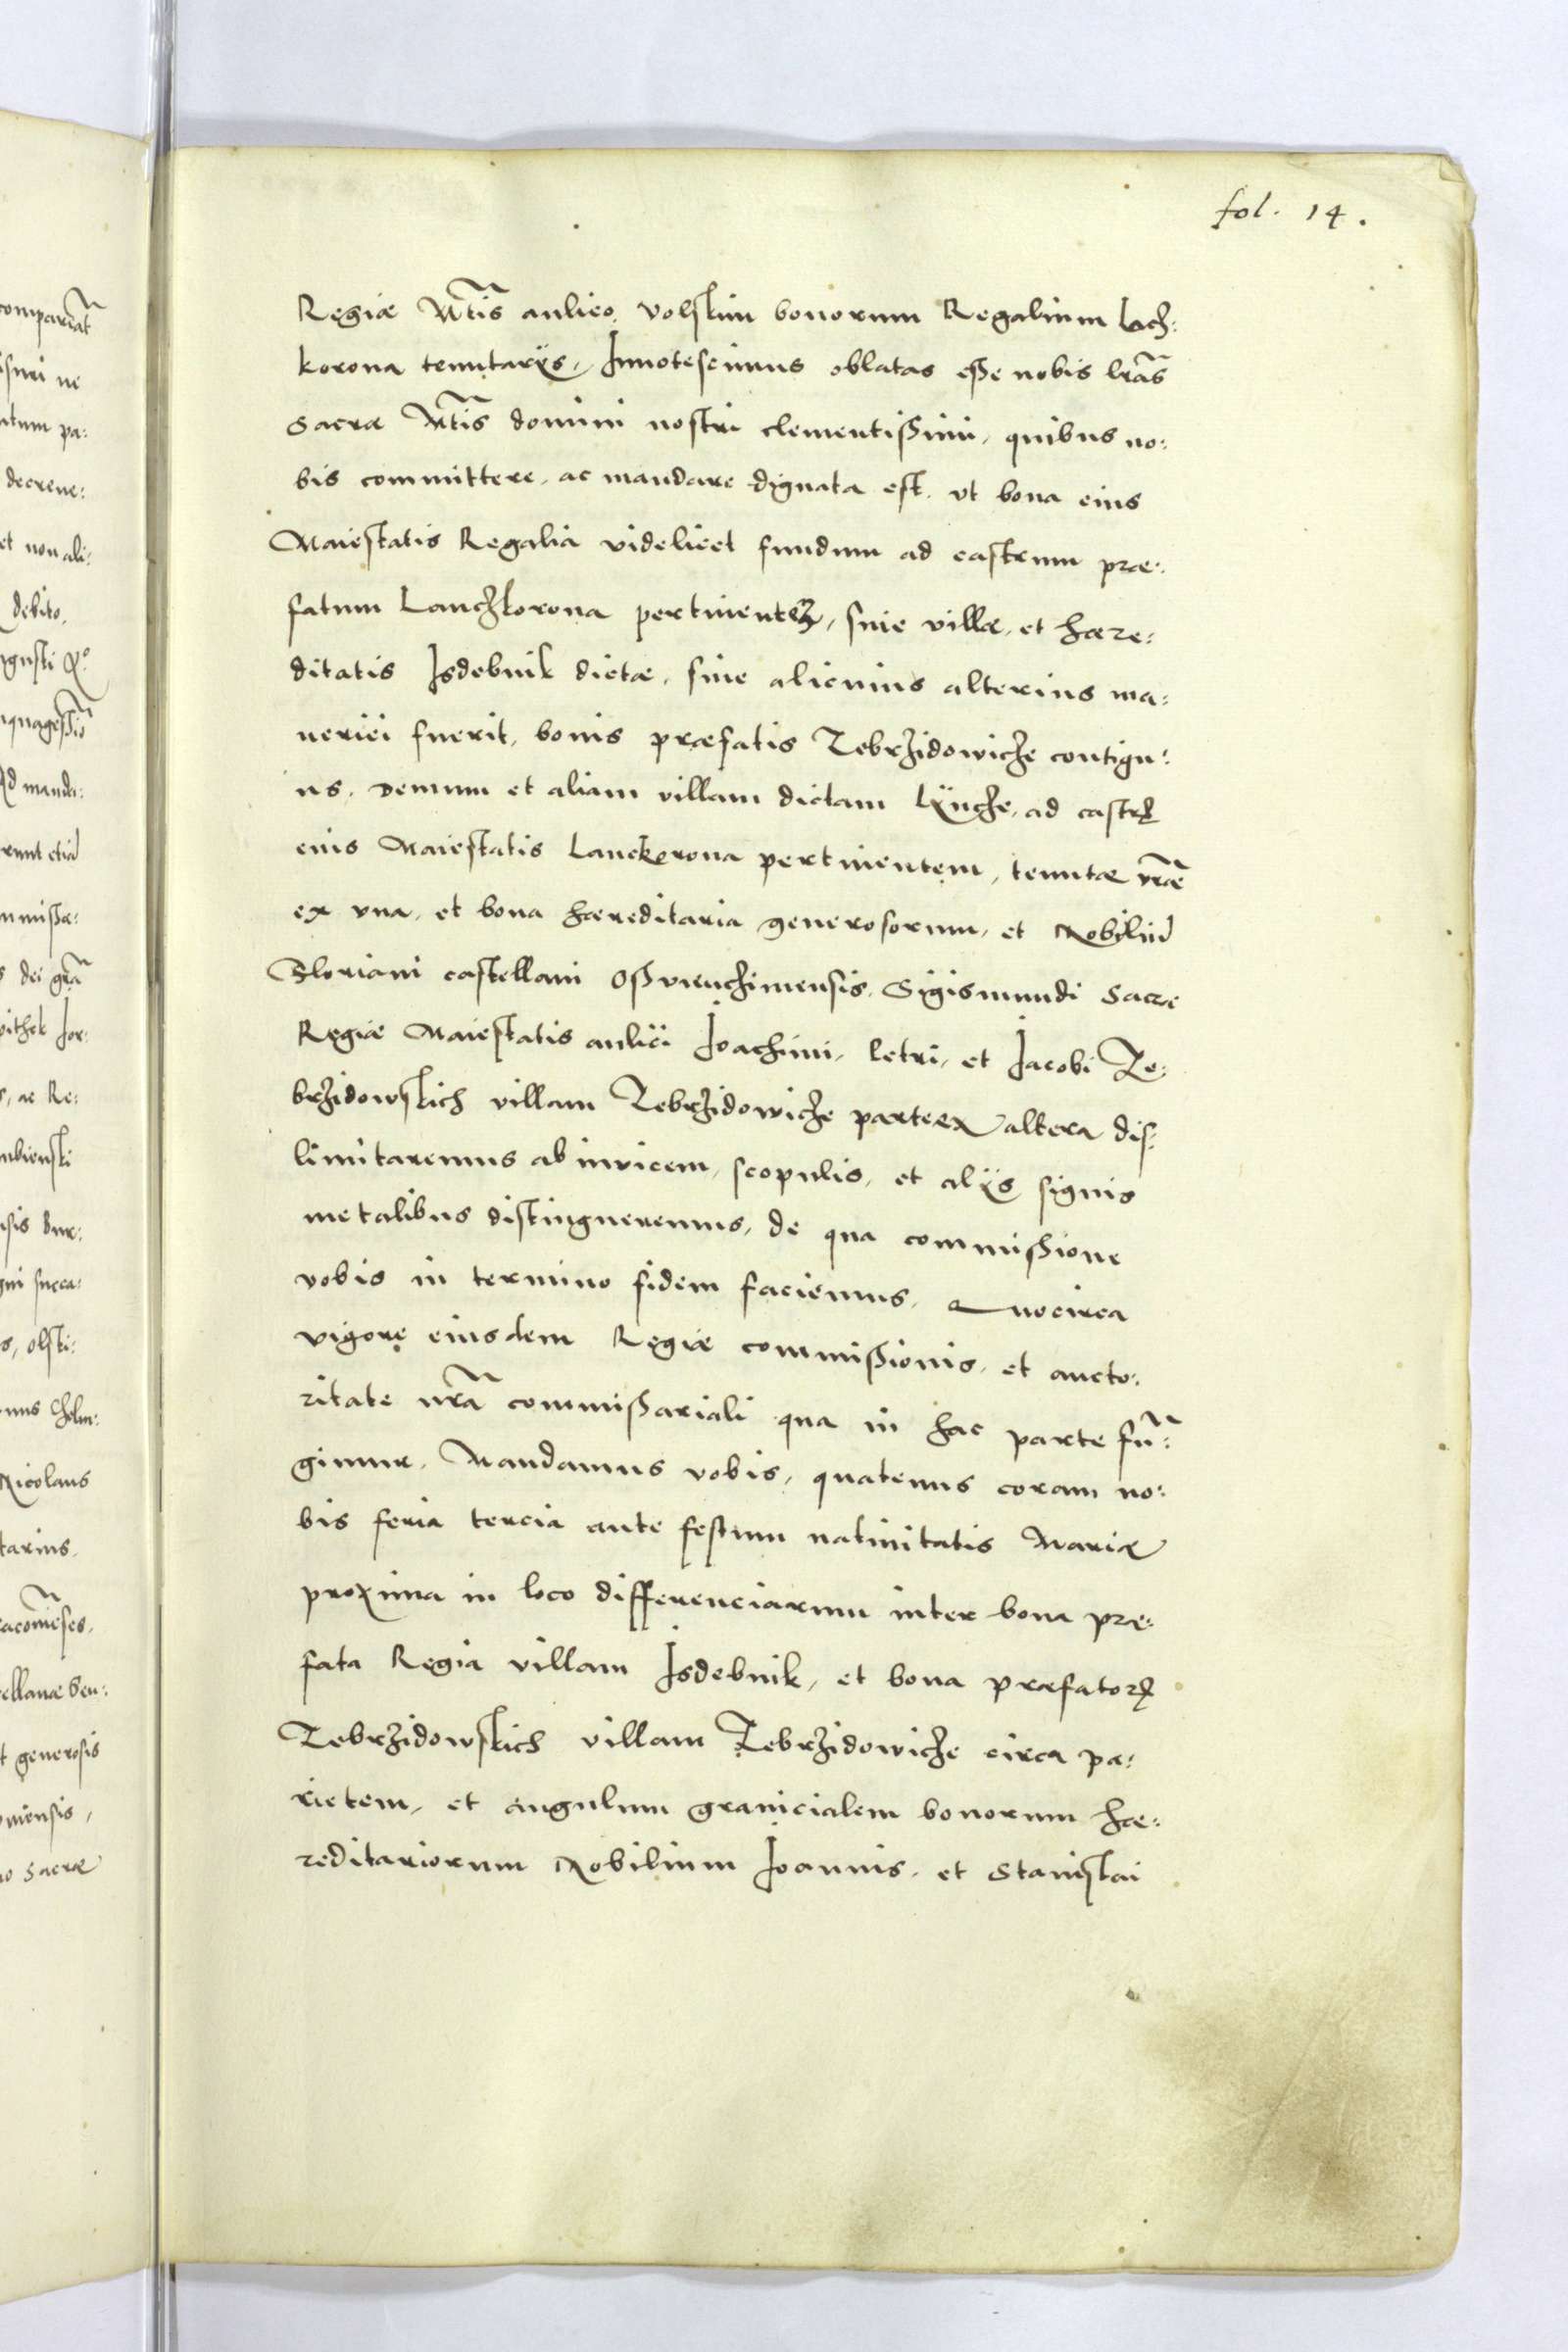 fol. 14.
Regiæ Mtis aulico, Volskim bonorum Regalium Lach:
korona tenutarijs, Innotescimus oblatas esse nobis lras
Sacræ Mtis domini nostri clementissimi, quibus no:
bis committere, ac mandare dignata est, vt bona eius
Maiestatis Regalia videlicet fundum ad castrum præ:
fatum Lanczkorona pertinentem, siue villæ, et hære:
ditatis Isdebnik dictæ, siue alicuius alterius ma:
neriei fuerit, bonis præfatis Zebrzidowicze contigu:
us, Demum et aliam villam dictam Lÿncze, ad castrum
eius Maiestatis Lanckorona pertinentem, tenutæ vræ
ex vna, et bona hæreditaria generosorum, et Nobiliu
Floriani castellani Osswienczimensis, Sigismundi Sacræ
Regiæ Maiestatis aulici Ioachimi, Petri, et Iacobi Ze:
brzidowskich villam Zebrzidowicze parte ex altera dis:
limitaremus ab invicem, scopulis, et alijs signis
metalibus distingueremus, de qua commissione
vobis in termino fidem faciemus, Quocirca
vigore eiusdem Regiæ commissionis, et aucto:
ritate nra commissariali qua in hac parte fun:
gimur, Mandamus vobis, quatenus coram no:
bis feria tercia ante festum natiuitatis Mariæ
proxima in loco differenciarum inter bona præ:
fata Regia villam Isdebnik, et bona præfatorum
Zebrzidowskich villam Zebrzidowicze circa pa:
rietem, et angulum granicialem bonorum hæ:
reditariorum Nobilium Ioannis, et Stanislai
compariat
isuri ne
pa:
decreue:
et non ali:
debito,
manda:
Nicolaus
tarius,
et generosis
Sacræ